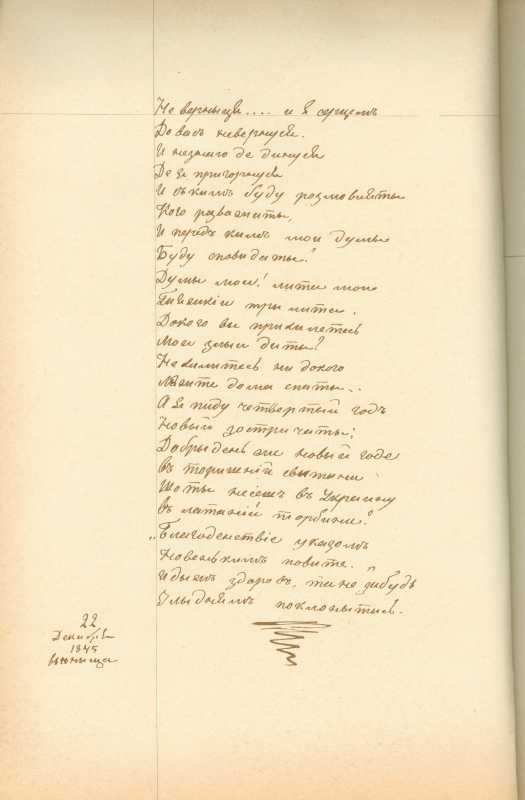 Не вернысця.... и я серцемъ
До васъ невернуся.
И незнаю де динуся
Де я пригорнуся
И съ кимъ буду розмовляты
Кого розважаты,
И передъ кимъ мои думы
Буду сповидаты?
Думы мои! лита мои
Тяжкіи три лита.
До кого вы прихилетесь
Мои злыи диты?
Нехилитесь ни докого
Ляжте дома спаты..
А я пиду четвертый годъ
Новый зостричаты;
Добрыдень же новый годе
Въ торишній свытыни
Що ты несешь въ Украину
Въ латаній торбыни?
„Благоденствіе указомъ
Новенькимъ повите."
Иды жъ здоровъ, та не забудь
Злыднямъ поклонытысь.
22
Декабря
1845
Вьюныща